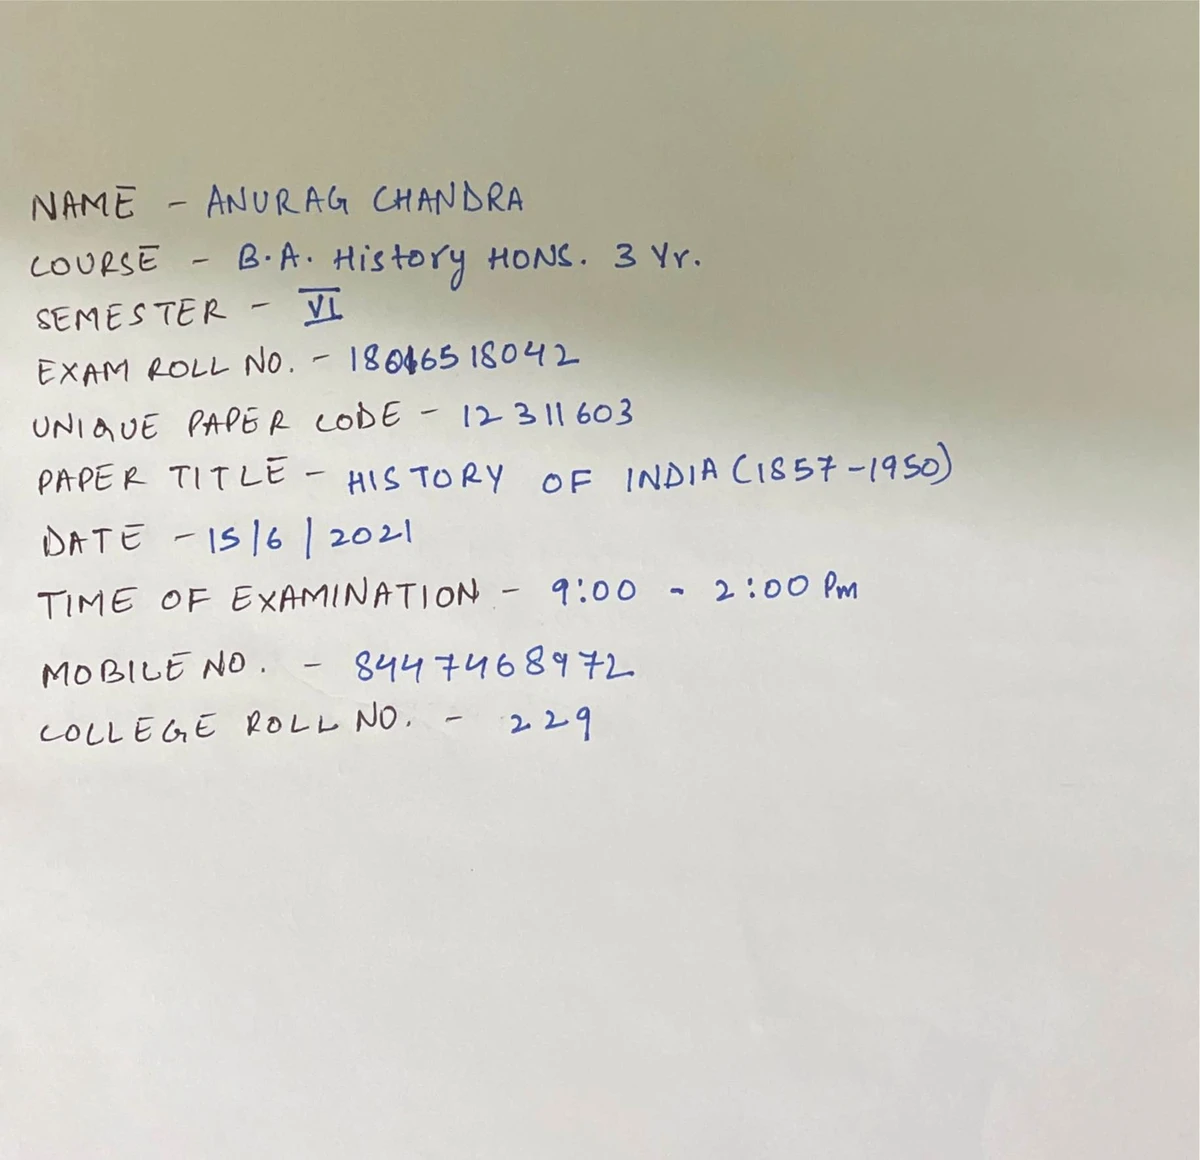 NAME - ANURAG CHANDRA
COURSE - B.A. History HONS. 3 Yr.
SEMESTER - VI
EXAM ROLL NO. - 18016518042
UNIQUE PAPER CODE - 12311603
PAPER TITLE - HISTORY OF INDIA (1857-1950)
DATE - 15/6/2021
TIME OF EXAMINATION - 9:00 - 2:00 Pm
MOBILE NO. - 8447468972
COLLEGE ROLL NO. - 229